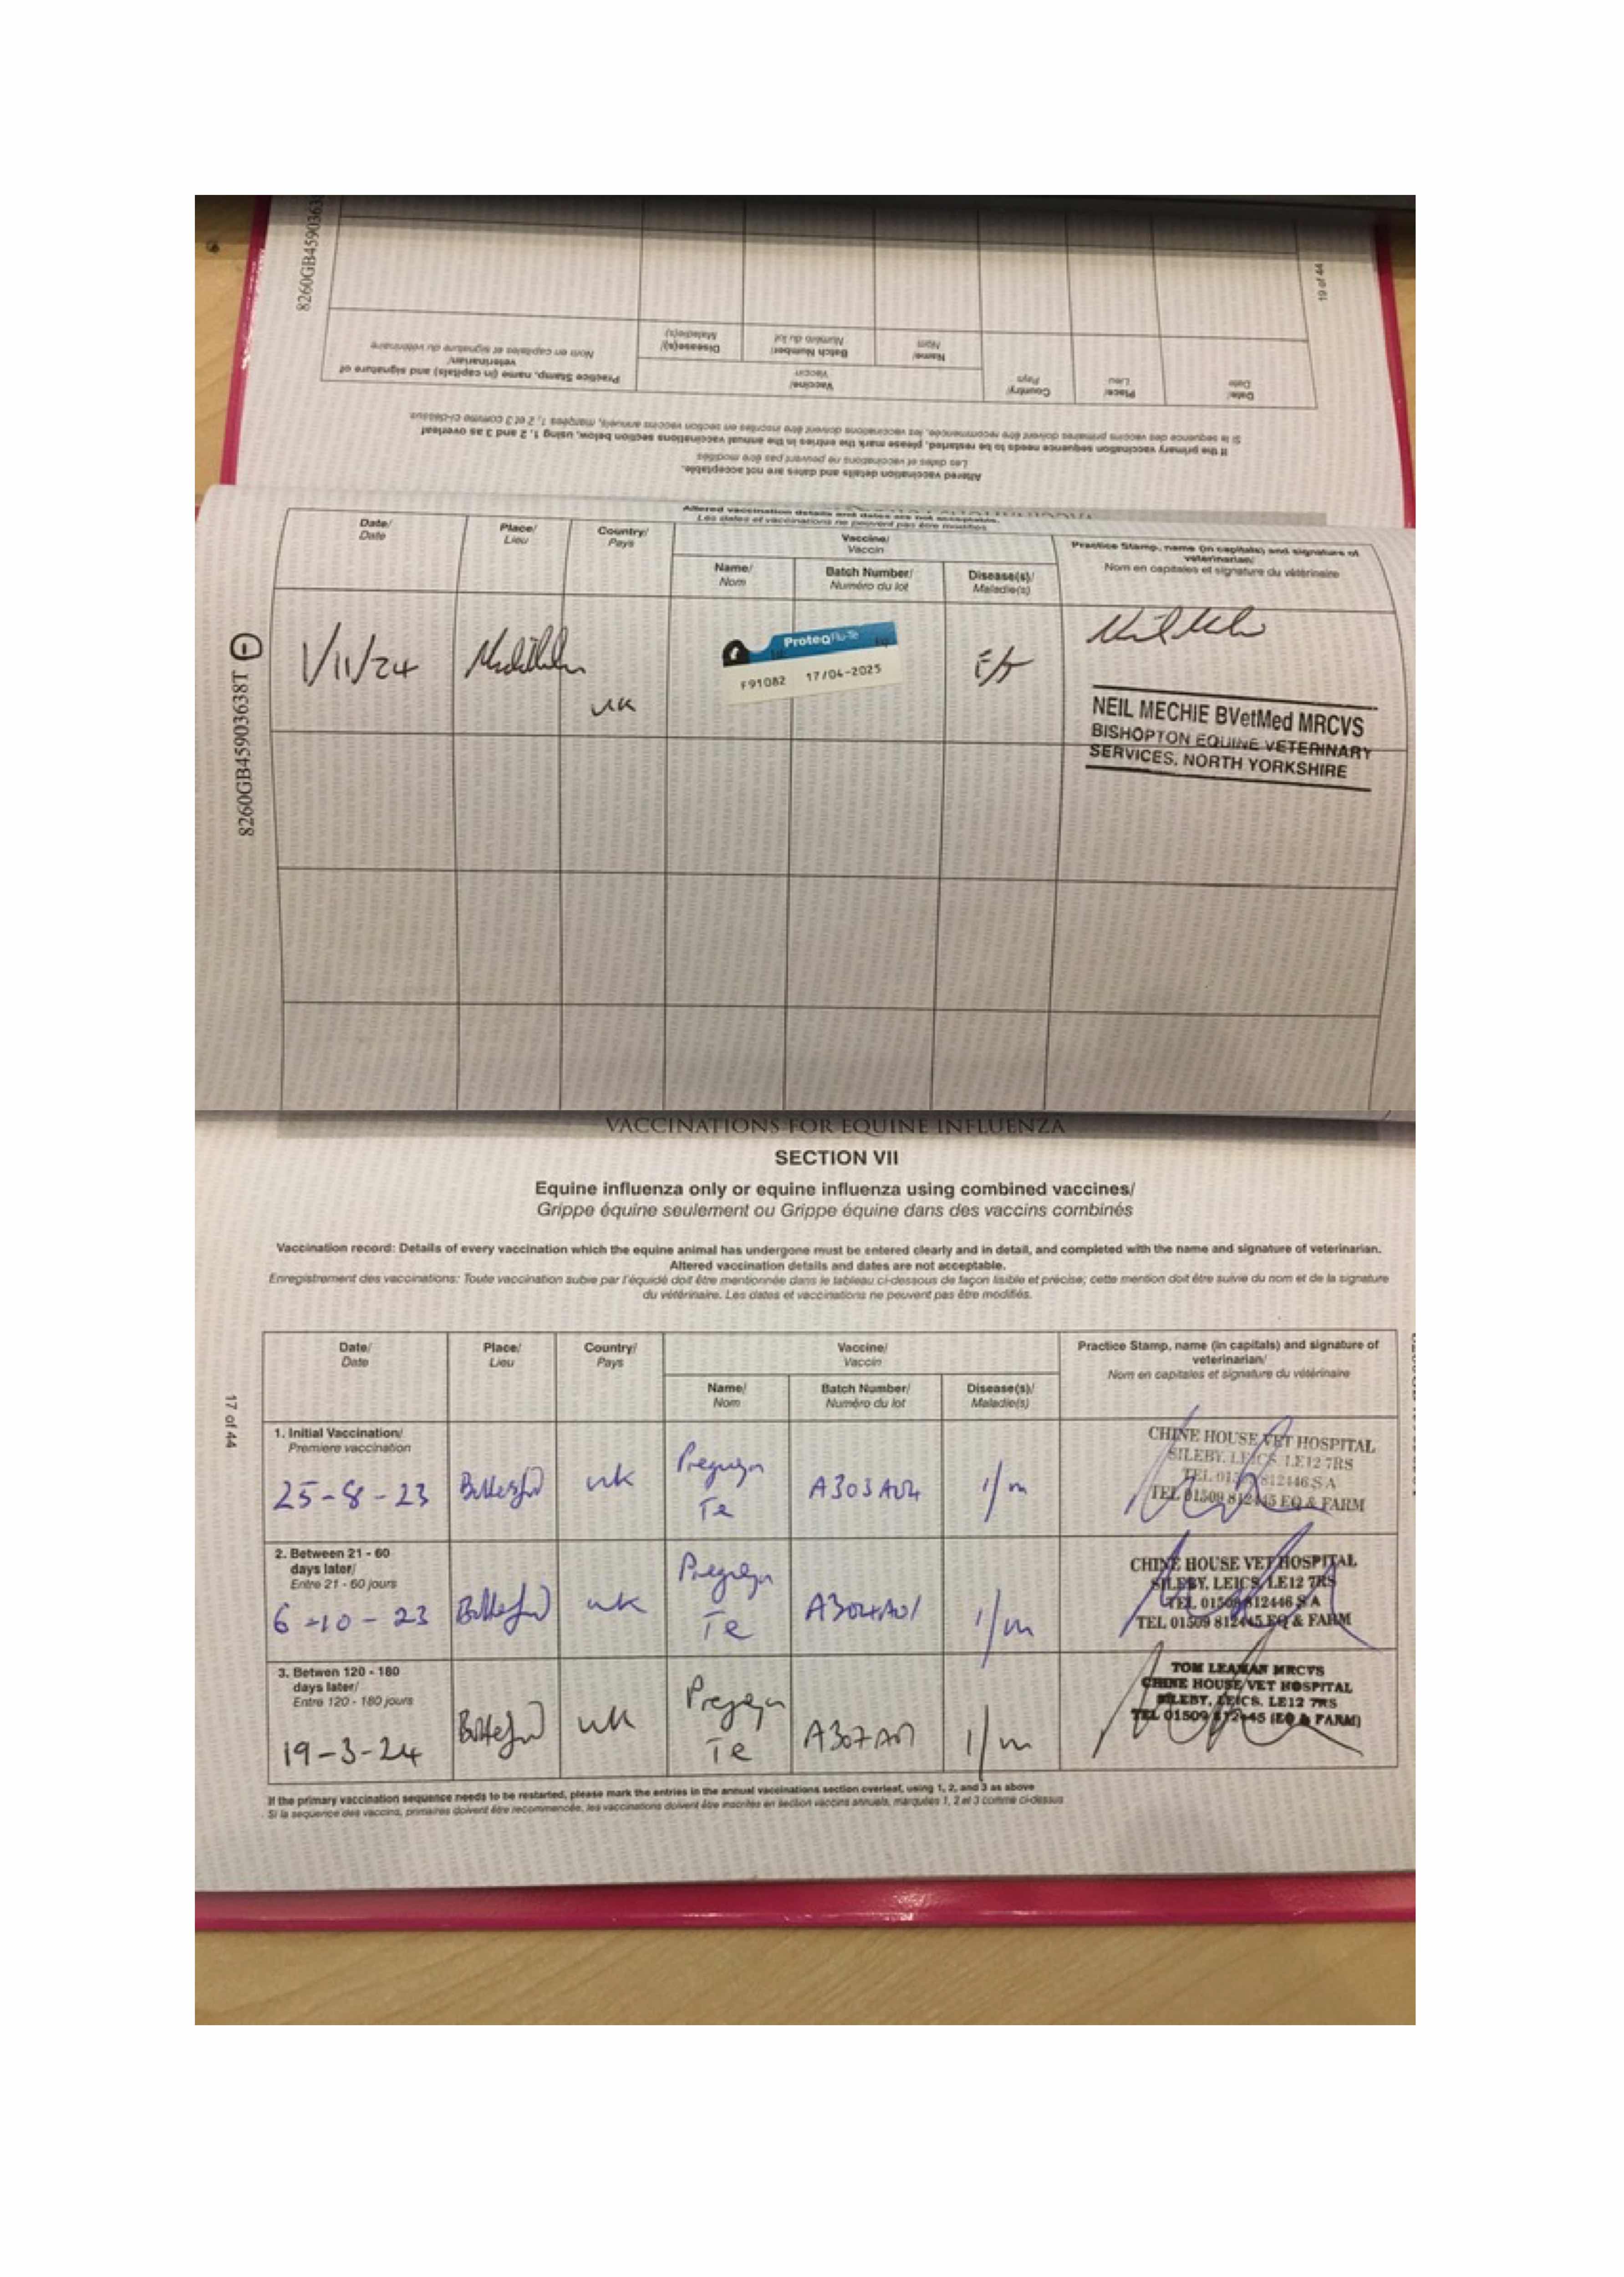 8260GB4590363
19 of 44
Date/
Date
Place/
Lieu
Country/
Pays
Vaccine/
Vaccin
Name/
Nom
Batch Number/
Numéro du lot
Disease(s)/
Maladie(s)
Practice Stamp, name (in capitals) and signature of
veterinarian/
Nom en capitales et signature du vétérinaire
If the primary vaccination sequence needs to be restarted, please mark the entries in the annual vaccinations section below, using 1, 2 and 3 as overleaf
Si la sequence des vaccins primaires doivent être recommencée, les vaccinations doivent être inscrites en section vaccins annuels, marquées 1, 2 et 3 comme ci-dessus
Altered vaccination details and dates are not acceptable.
Les dates et vaccinations ne peuvent pas être modifiés
Altered vaccination details and dates are not acceptable.
Les dates et vaccinations ne peuvent pas être modifiés
Date/
Date
Place/
Lieu
Country/
Pays
Vaccine/
Vaccin
Name/
Nom
Batch Number/
Numéro du lot
Disease(s)/
Maladie(s)
Practice Stamp, name (in capitals) and signature of
veterinarian/
Nom en capitales et signature du vétérinaire
8260GB45903638T
1/11/24
UK
ProteqFlu-Te
F91082 17/04-2025
NEIL MECHIE BVetMed MRCVS
BISHOPTON EQUINE VETERINARY
SERVICES, NORTH YORKSHIRE
VACCINATIONS FOR EQUINE INFLUENZA
SECTION VII
Equine influenza only or equine influenza using combined vaccines/
Grippe équine seulement ou Grippe équine dans des vaccins combinés
Vaccination record: Details of every vaccination which the equine animal has undergone must be entered clearly and in detail, and completed with the name and signature of veterinarian.
Altered vaccination details and dates are not acceptable.
Enregistrement des vaccinations: Toute vaccination subie par l'équidé doit être mentionnée dans le tableau ci-dessous de façon lisible et précise; cette mention doit être suivie du nom et de la signature
du vétérinaire. Les dates et vaccinations ne peuvent pas être modifiés.
17 of 44
Date/
Date
Place/
Lieu
Country/
Pays
Vaccine/
Vaccin
Name/
Nom
Batch Number/
Numéro du lot
Disease(s)/
Maladie(s)
Practice Stamp, name (in capitals) and signature of
veterinarian/
Nom en capitales et signature du vétérinaire
1. Initial Vaccination/
Premiere vaccination
25-8-23
uk
Te
CHINE HOUSE VET HOSPITAL
SILEBY. LEICS. LE12 7RS
812446 S A
TEL 01509 812445 EQ & FARM
2. Between 21 - 60
days later/
Entre 21 - 60 jours
6-10-23
uk
Te
A304A01
CHINE HOUSE VET HOSPITAL
SILEBY, LEICS, LE12 7RS
TEL 01509 812446 S A
TEL 01509 812445 EQ & FARM
3. Betwen 120 - 180
days later/
Entre 120 - 180 jours
19-3-24
uk
Te
TOM LEAMAN MRCVS
CHINE HOUSE VET HOSPITAL
SILEBY, LEICS. LE12 7RS
TEL 01509 812445 (EQ & FARM)
If the primary vaccination sequence needs to be restarted, please mark the entries in the annual vaccinations section overleaf, using 1, 2, and 3 as above
Si la sequence des vaccins, primaires doivent être recommencée, les vaccinations doivent être inscrites en section vaccins annuels, marquées 1, 2 et 3 comme ci-dessus